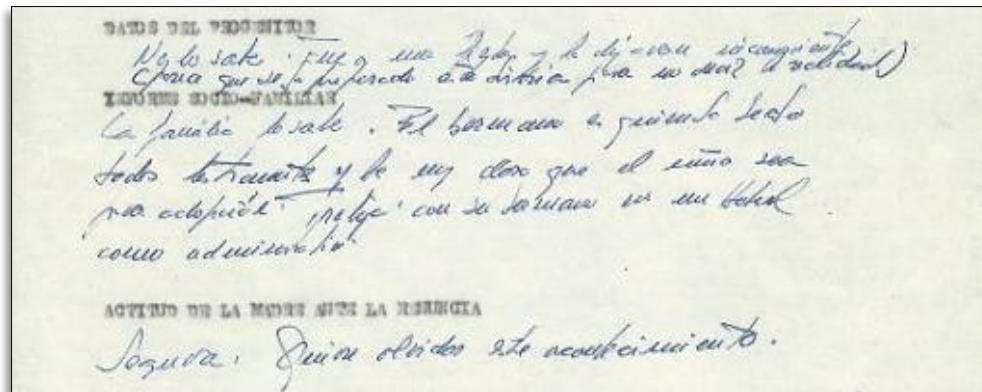 DATOS DEL PROGENITOR
No lo sabe. Fue a una y le dejaron inconsciente
(creo que se ha preparado esta historia para no decir la realidad)
INFORME SOCIO-FAMILIAR
La familia lo sabe. El hermano es quien ha llevado
todos los y ve muy claro que el niño sea
para adopción. con su hermano en un Hotel
como administrativa.
ACTITUD DE LA MADRE ANTE LA RENUNCIA
Segura. Quiere olvidar este acontecimiento.